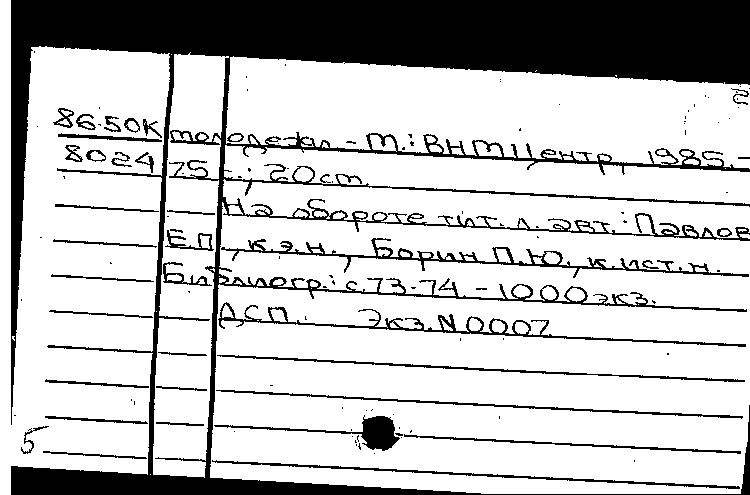 2
86-50К молодежи. - М.: ВНТИЦентр, 1985. -
8024 75 с.; 20см.
На обороте тит. л. авт.: Павлов
Е.П., к.э.н., Борин П.Ю., к.ист.н.
Библиогр.: с.73-74. - 1000экз.
ДСП. Экз.N0007
5